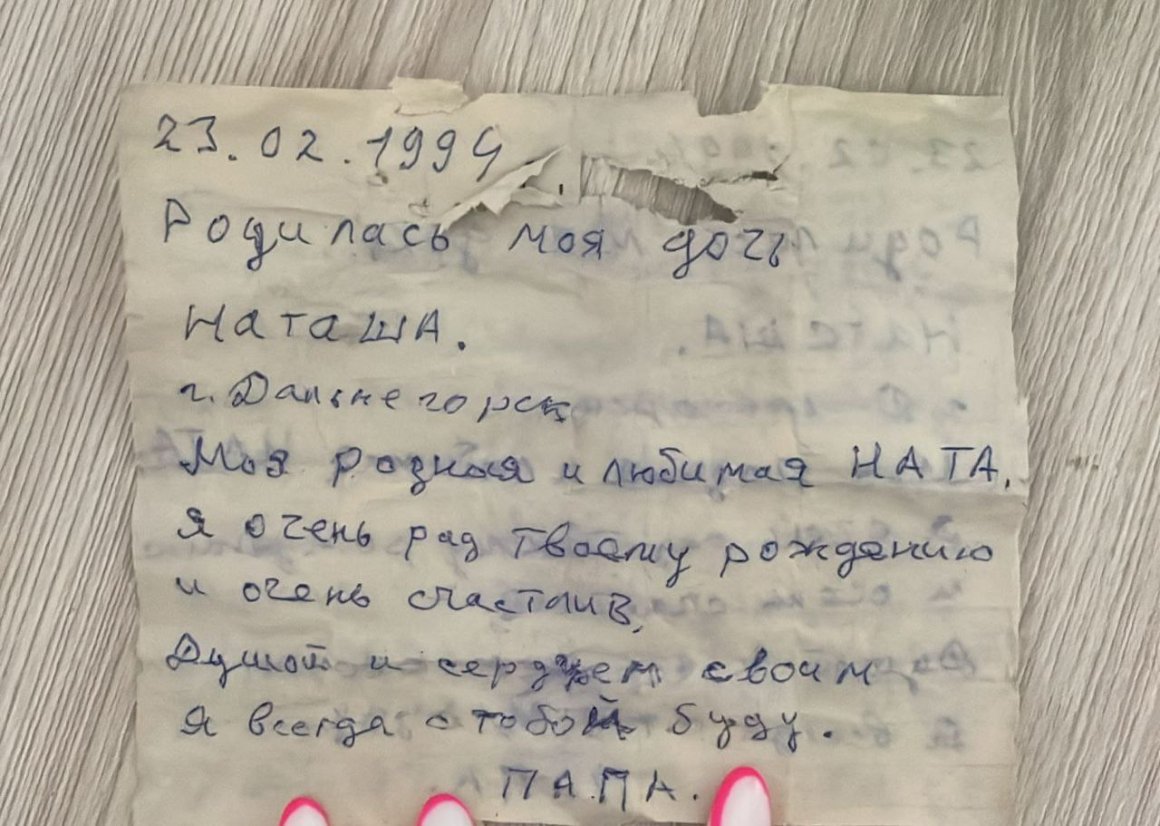 23.02.1994
Родилась моя дочь
Наташа.
г. Дальнегорск
Моя родная и любимая НАТА,
я очень рад твоему рождению
и очень счастлив,
Душой и сердцем своим
я всегда с тобой буду.
ПАПА.